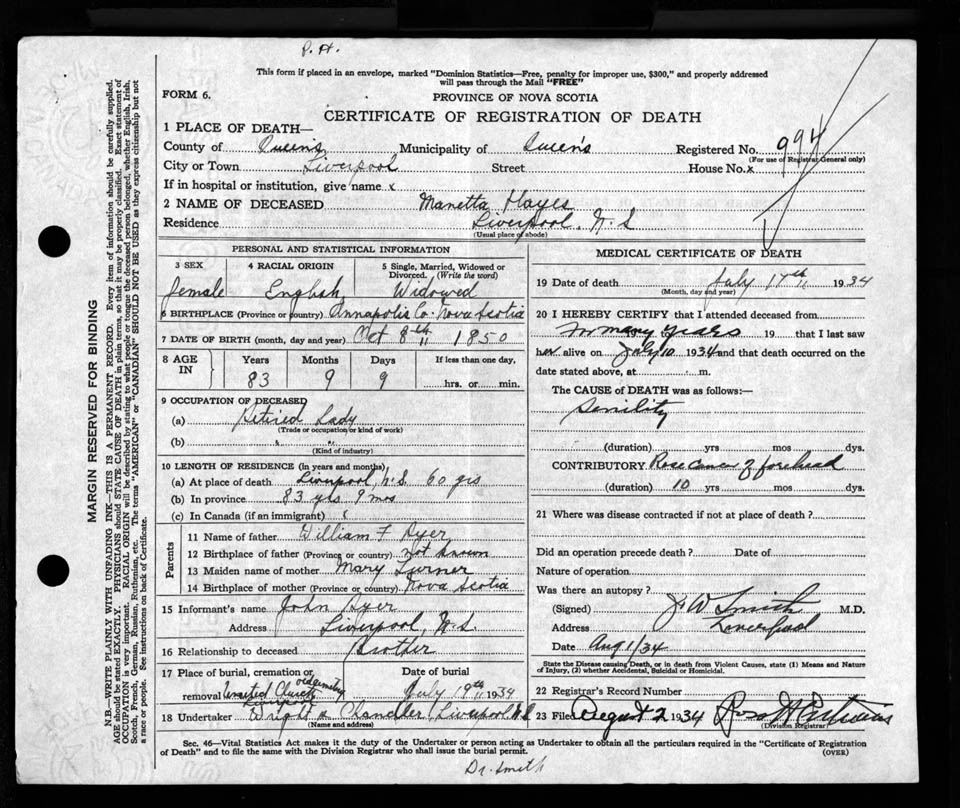 P. H.
This form if placed in an envelope, marked "Dominion Statistics—Free, penalty for improper use, $300," and properly addressed
will pass through the Mail "FREE"
FORM 6.
PROVINCE OF NOVA SCOTIA
CERTIFICATE OF REGISTRATION OF DEATH
1 PLACE OF DEATH—
County of Queens Municipality of Queens Registered No. 994
(For use of Registrar General only)
City or Town Liverpool Street House No. x
If in hospital or institution, give name x
2 NAME OF DECEASED Manetta Hayes
Residence Liverpool, N.S
(Usual place of abode)
PERSONAL AND STATISTICAL INFORMATION
3 SEX 4 RACIAL ORIGIN 5 Single, Married, Widowed or Divorced. (Write the word)
female English Widowed
6 BIRTHPLACE (Province or country) Annapolis Co. Nova Scotia
7 DATE OF BIRTH (month, day and year) Oct 8th 1850
8 AGE IN Years Months Days If less than one day,
83 9 9 hrs. or min.
9 OCCUPATION OF DECEASED
(a) Retired Lady
(Trade or occupation or kind of work)
(b)
(Kind of industry)
10 LENGTH OF RESIDENCE (in years and months)
(a) At place of death Liverpool, N.S 60 yrs
(b) In province 83 yrs 9 mos
(c) In Canada (if an immigrant) x
Parents
11 Name of father William F Dyer
12 Birthplace of father (Province or country) not known
13 Maiden name of mother Mary Turner
14 Birthplace of mother (Province or country) Nova Scotia
15 Informant's name John Dyer
Address Liverpool, N.S.
16 Relationship to deceased Brother
17 Place of burial, cremation or removal Date of burial
United Church old cemetery Liverpool July 19th 1934
18 Undertaker Wright & Chandler Liverpool N.S
(Name and address)
MEDICAL CERTIFICATE OF DEATH
19 Date of death July 17th 1934
(Month, day and year)
20 I HEREBY CERTIFY that I attended deceased from
for many years 19 to 19 that I last saw
her alive on July 10 1934 and that death occurred on the
date stated above, at m.
The CAUSE of DEATH was as follows:—
Senility
(duration) yrs mos dys.
CONTRIBUTORY Rose cancer of forehead
(duration) 10 yrs mos dys.
21 Where was disease contracted if not at place of death?
Did an operation precede death? Date of
Nature of operation
Was there an autopsy?
(Signed) J W Smith M.D.
Address Liverpool
Date Aug 1/34
State the Disease causing Death, or in death from Violent Causes, state (1) Means and Nature
of Injury, (2) whether Accidental, Suicidal or Homicidal.
22 Registrar's Record Number
23 Filed August 2 1934
(Division Registrar)
Sec. 46—Vital Statistics Act makes it the duty of the Undertaker or person acting as Undertaker to obtain all the particulars required in the "Certificate of Registration
of Death" and to file the same with the Division Registrar who shall issue the burial permit. (OVER)
Dr. Smith
MARGIN RESERVED FOR BINDING
N.B.—WRITE PLAINLY WITH UNFADING INK—THIS IS A PERMANENT RECORD. Every item of information should be carefully supplied.
AGE should be stated EXACTLY. PHYSICIANS should STATE CAUSE OF DEATH in plain terms, so that it may be properly classified. Exact statement of
OCCUPATION is very important. RACIAL ORIGIN will be described by stating to what people or tongue the deceased person belonged, whether English, Irish,
Scotch, French, German, Russian, Ruthenian, etc. The terms "AMERICAN" or "CANADIAN" SHOULD NOT BE USED as they express citizenship but not
a race or people. See instructions on back of Certificate.